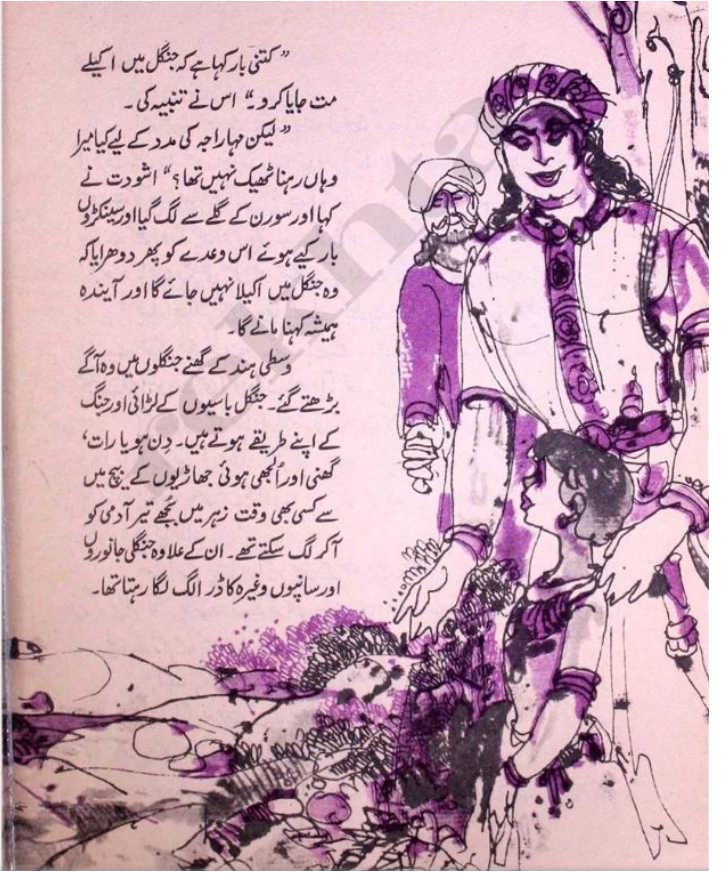 ”کتنی بار کہا ہے کہ جنگل میں اکیلے
مت جایا کرو۔“ اس نے تنبیہ کی۔
”لیکن مہاراجہ کی مدد کے لیے کیا میرا
وہاں رہنا ٹھیک نہیں تھا؟“ اشودت نے
کہا اور سورن کے گلے سے لگ گیا اور سینکڑوں
بار کیے ہوئے اس وعدے کو پھر دوھرایا کہ
وہ جنگل میں اکیلا نہیں جائے گا اور آیندہ
ہمیشہ کہنا مانے گا۔
وسطی ہند کے گھنے جنگلوں میں وہ آگے
بڑھتے گئے۔ جنگل باسیوں کے لڑائی اور جنگ
کے اپنے طریقے ہوتے ہیں۔ دِن ہو یا رات،
گھنی اور اُلجھی ہوئی جھاڑیوں کے بیچ میں
سے کسی بھی وقت زہر میں بُجھے تیر آدمی کو
آکر لگ سکتے تھے۔ ان کے علاوہ جنگلی جانوروں
اور سانپوں وغیرہ کا ڈر الگ لگا رہتا تھا۔
rekhta